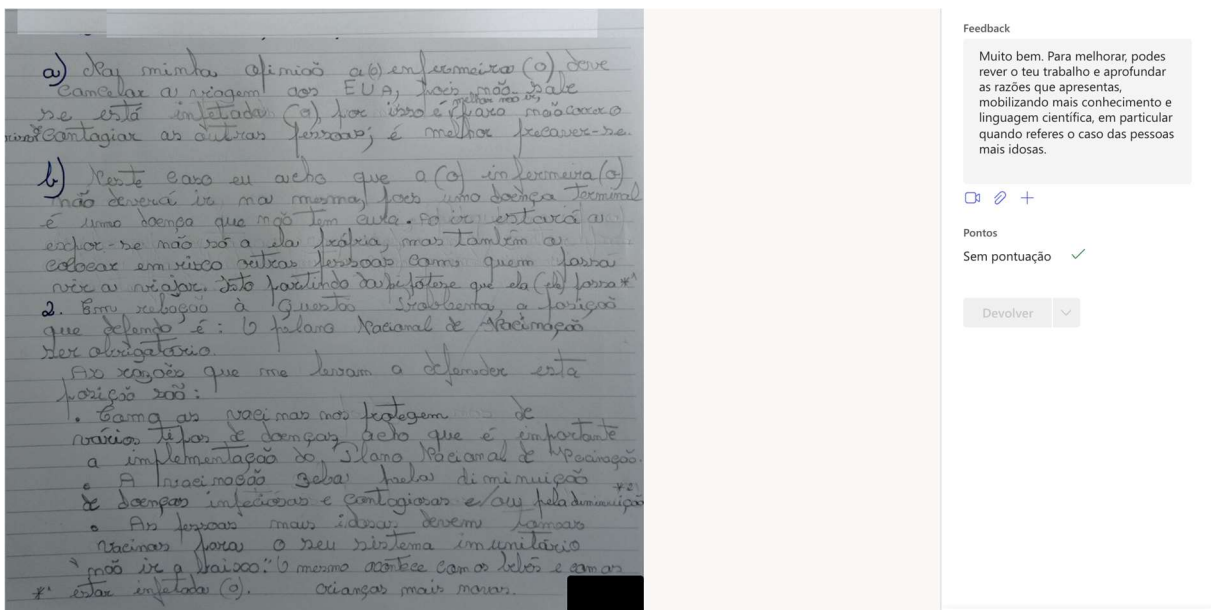 a) Na minha opinião a(o) enfermeira (o) deve
cancelar a viagem aos EUA, pois não sabe
se está infetada (o) por isso é melhor não ir, para não correr o
risco contagiar as outras pessoas; é melhor precaver-se.
b) Neste caso eu acho que a (o) infermeira (o)
não deverá ir na mesma, pois uma doença terminal
é uma doença que não tem cura. Ao ir estará a
expor-se não só a ela própria, mas também a
colocar em risco outras pessoas como quem possa
vir a viajar. Isto partindo da hipótese que ela (ele) possa *¹
2. Em relação à Questão Problema, a posição
que defendo é: O plano Nacional de Vacinação
ser obrigatório.
As razões que me levam a defender esta
posição são:
• Como as vacinas nos protegem de
vários tipos de doenças acho que é importante
a implementação do Plano Nacional de Vacinação.
• A vacinação pela diminuição *²
de doenças infeciosas e contagiosas e/ou pela diminuição
• As pessoas mais idosas devem tomar
vacinas para o seu sistema imunitário
"não ir a baixo." O mesmo acontece com os bebés e com as
*¹ estar infetada (o). crianças mais novas.
Feedback
Muito bem. Para melhorar, podes
rever o teu trabalho e aprofundar
as razões que apresentas,
mobilizando mais conhecimento e
linguagem científica, em particular
quando referes o caso das pessoas
mais idosas.
Pontos
Sem pontuação
Devolver